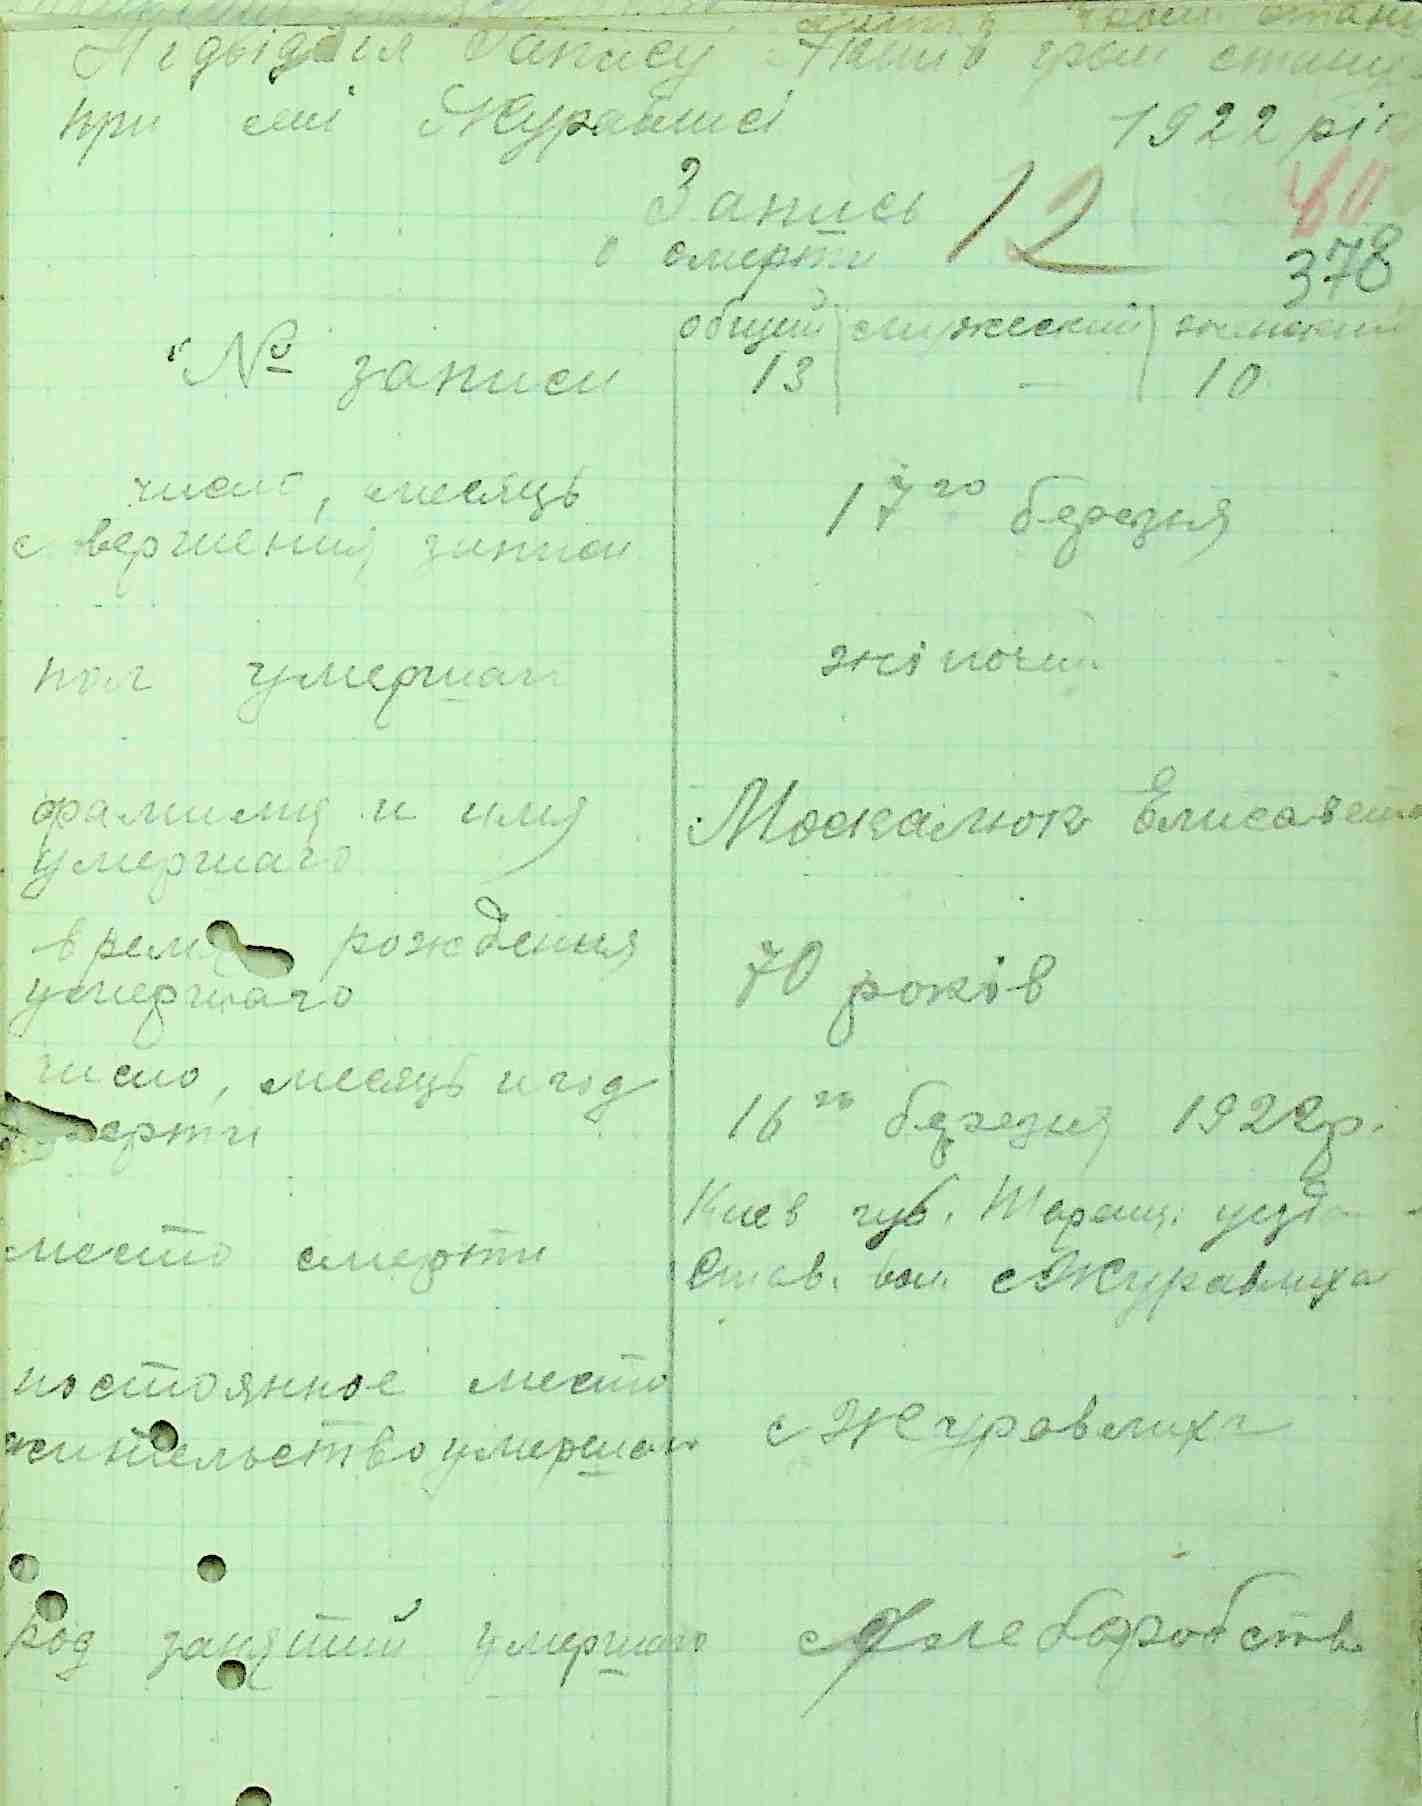 Підвідділ Запису Актів гром стану
при селі Журавлисі 1922 рік
Запись 12
о смерти 378
общий мужеский женский
№ записи 13 — 10
число, месяць
совершения записи 17го березня
пол умершаго жіночий
фамилия и имя Москалюк Елисавета
умершаго
время рождения
умершаго 70 років
число, месяць и год
смерти 16го березня 1922 р.
Киев губ. Таращ. уезда
место смерти Став. вол. с Журавлиха
постоянное место
жительство умершаго с Журавлиха
род занятий умершаго хлеборобство